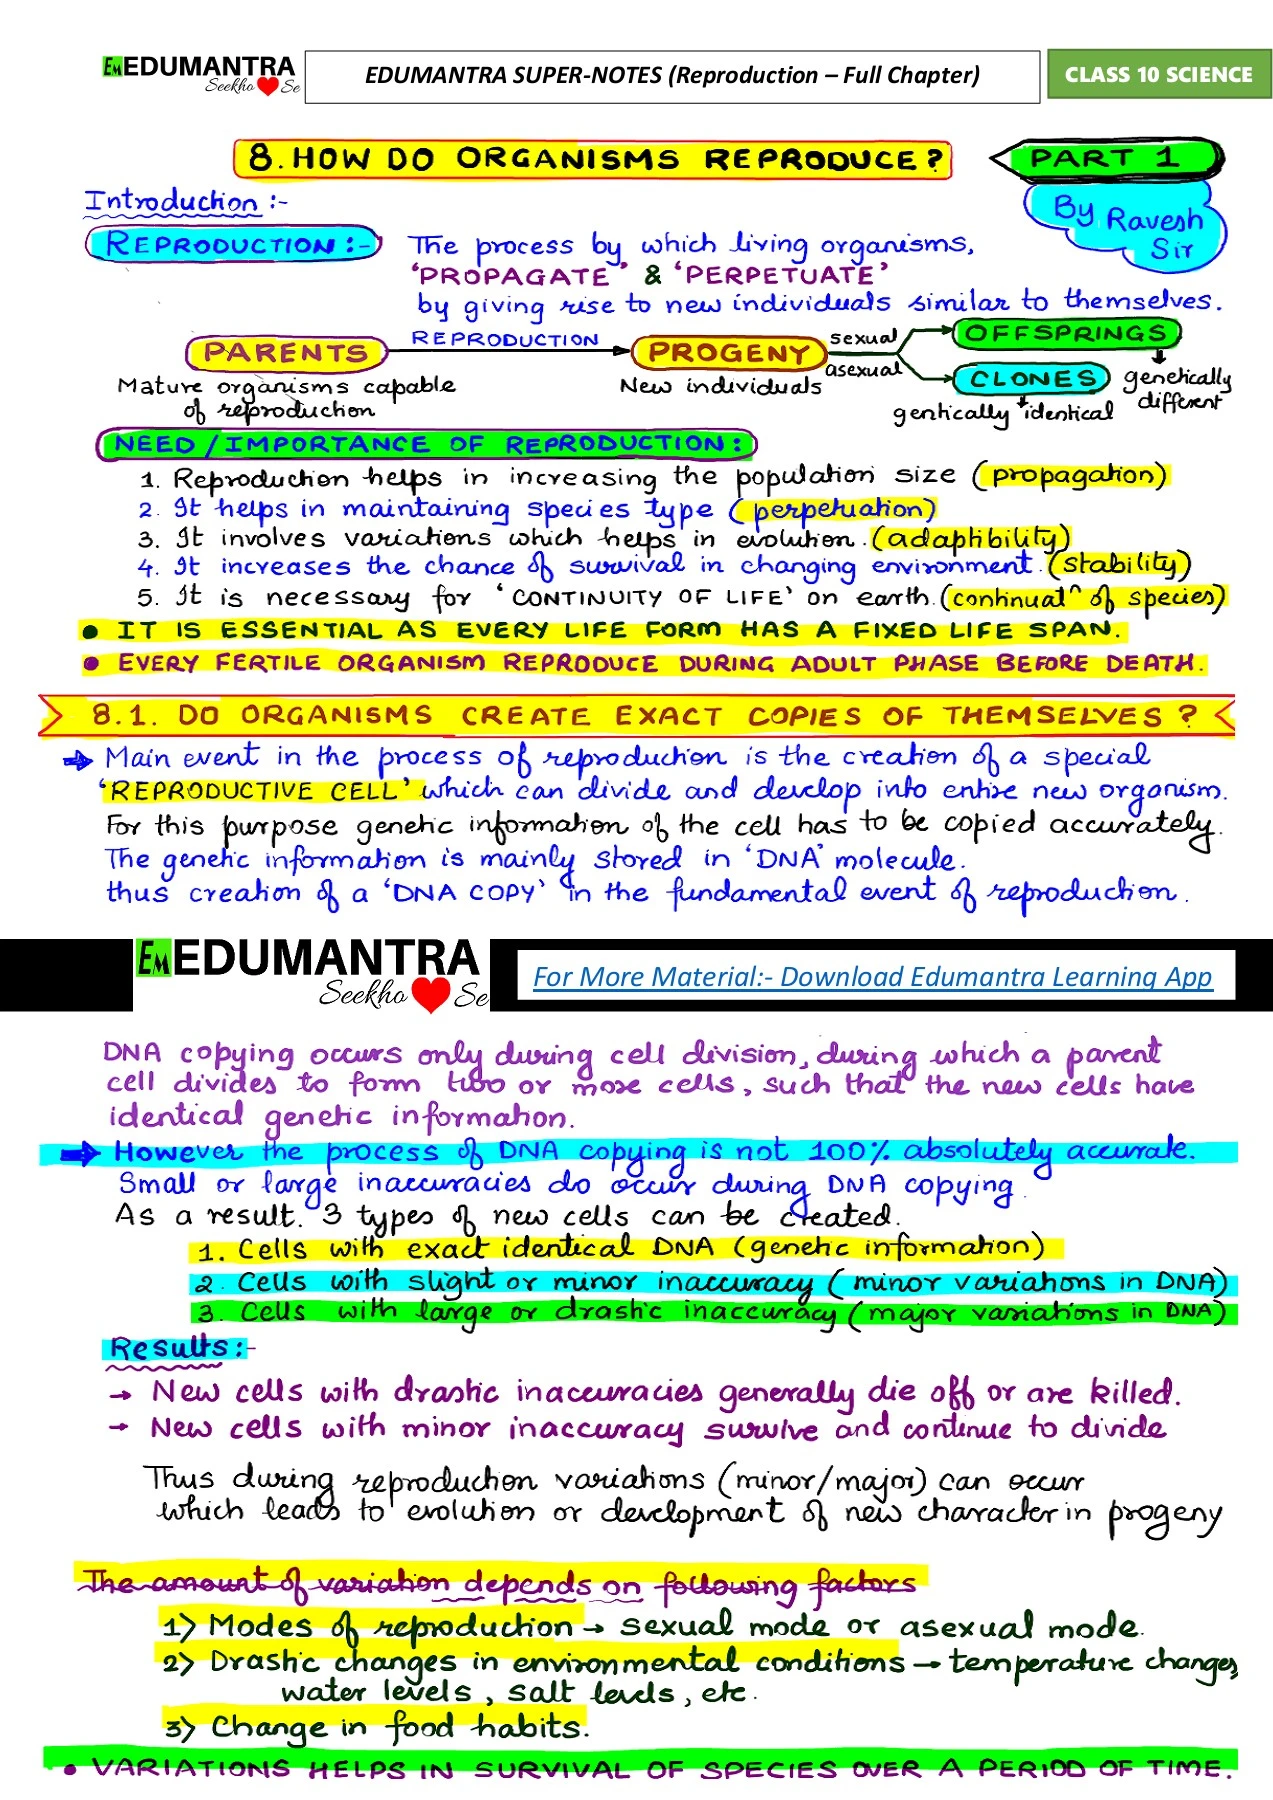 Em EDUMANTRA
Seekho Se
EDUMANTRA SUPER-NOTES (Reproduction – Full Chapter)
CLASS 10 SCIENCE
8. HOW DO ORGANISMS REPRODUCE?
PART 1
By Ravesh Sir
Introduction :-
REPRODUCTION :-
The process by which living organisms,
'PROPAGATE' & 'PERPETUATE'
by giving rise to new individuals similar to themselves.
PARENTS
REPRODUCTION
PROGENY
sexual
asexual
OFFSPRINGS
CLONES
Mature organisms capable
of reproduction
New individuals
genetically
different
gentically identical
NEED / IMPORTANCE OF REPRODUCTION :
1. Reproduction helps in increasing the population size (propagation)
2. It helps in maintaining species type (perpetuation)
3. It involves variations which helps in evolution. (adaptibility)
4. It increases the chance of survival in changing environment. (stability)
5. It is necessary for 'CONTINUITY OF LIFE' on earth. (continuatⁿ of species)
• IT IS ESSENTIAL AS EVERY LIFE FORM HAS A FIXED LIFE SPAN.
• EVERY FERTILE ORGANISM REPRODUCE DURING ADULT PHASE BEFORE DEATH.
8.1. DO ORGANISMS CREATE EXACT COPIES OF THEMSELVES ?
→ Main event in the process of reproduction is the creation of a special
'REPRODUCTIVE CELL' which can divide and develop into entire new organism.
For this purpose genetic information of the cell has to be copied accurately.
The genetic information is mainly stored in 'DNA' molecule.
thus creation of a 'DNA COPY' in the fundamental event of reproduction.
Em EDUMANTRA
Seekho Se
For More Material:- Download Edumantra Learning App
DNA copying occurs only during cell division, during which a parent
cell divides to form two or more cells, such that the new cells have
identical genetic information.
→ However the process of DNA copying is not 100% absolutely accurate.
Small or large inaccuracies do occur during DNA copying.
As a result. 3 types of new cells can be created.
1. Cells with exact identical DNA (genetic information)
2. Cells with slight or minor inaccuracy (minor variations in DNA)
3. Cells with large or drastic inaccuracy (major variations in DNA)
Results :-
→ New cells with drastic inaccuracies generally die off or are killed.
→ New cells with minor inaccuracy survive and continue to divide
Thus during reproduction variations (minor/major) can occur
which leads to evolution or development of new character in progeny
The amount of variation depends on following factors
1) Modes of reproduction → sexual mode or asexual mode.
2) Drastic changes in environmental conditions → temperature changes,
water levels, salt levels, etc.
3) Change in food habits.
• VARIATIONS HELPS IN SURVIVAL OF SPECIES OVER A PERIOD OF TIME.